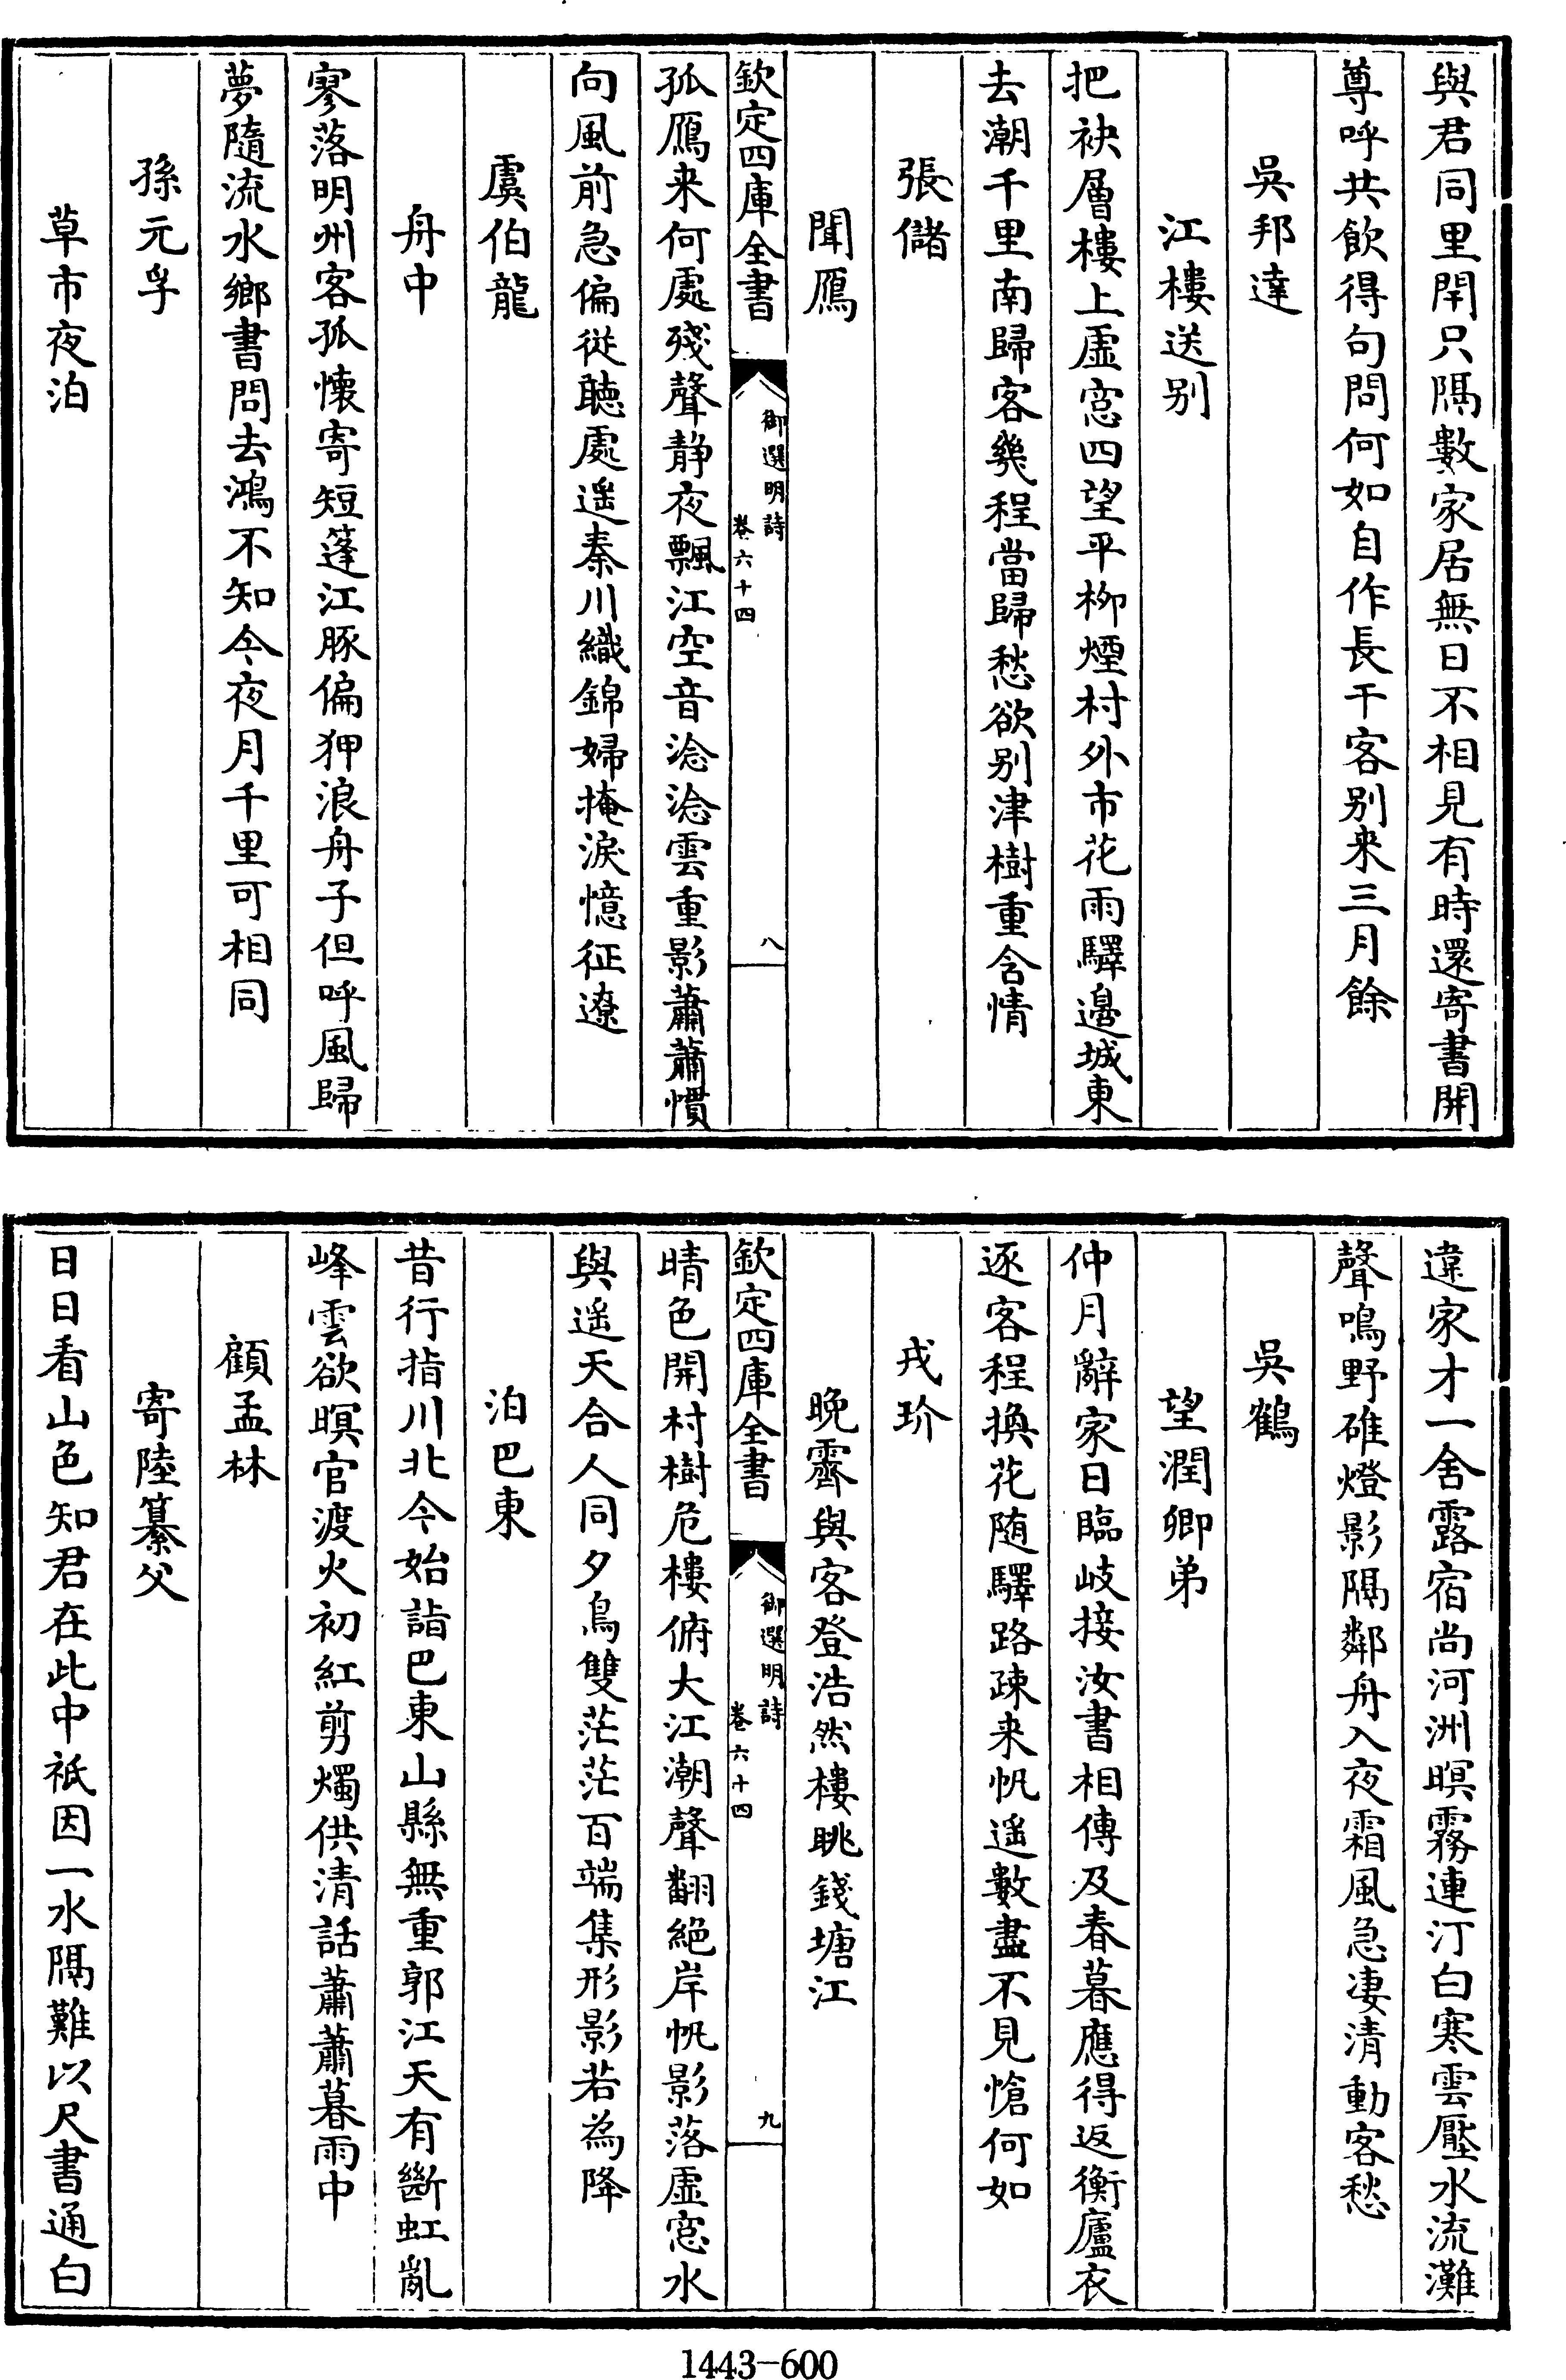 與君同里閈只隔數家居無日不相見有時還寄書開
尊呼共飲得句問何如自作長干客别来三月餘
吳邦達
江樓送别
把袂層樓上虛窓四望平柳煙村外市花雨驛邉城東
去潮千里南歸客幾程當歸愁欲别津樹重含情
張儲
聞鴈
欽定四庫全書
御選明詩
卷六十四
八
孤鴈来何處殘聲静夜飄江空音淰淰雲重影蕭蕭慣
向風前急偏從聽處遥秦川織錦婦掩淚憶征遼
虞伯龍
舟中
寥落明州客孤懷寄短篷江豚偏狎浪舟子但呼風歸
夢隨流水鄉書問去鴻不知今夜月千里可相同
孫元孚
草市夜泊
違家才一舍露宿尚河洲暝霧連汀白寒雲壓水流灘
聲鳴野碓燈影隔鄰舟入夜霜風急凄清動客愁
吳鶴
望潤卿弟
仲月辭家日臨岐接汝書相傳及春暮應得返衡廬衣
逐客程換花随驛路疎来帆遥數盡不見愴何如
戎玠
晚霽與客登浩然樓眺錢塘江
欽定四庫全書
御選明詩
卷六十四
九
晴色開村樹危樓俯大江潮聲翻絕岸帆影落虛窓水
與遥天合人同夕鳥雙茫茫百端集形影若為降
泊巴東
昔行指川北今始詣巴東山縣無重郭江天有斷虹亂
峰雲欲暝官渡火初紅剪燭供清話蕭蕭暮雨中
顧孟林
寄陸纂父
日日看山色知君在此中祇因一水隔難以尺書通白
1443-600